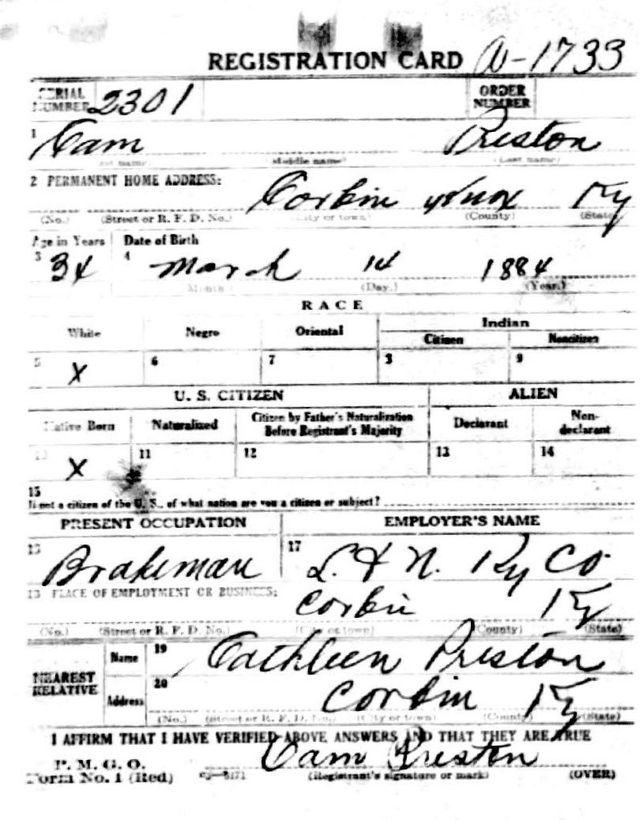 REGISTRATION CARD A-1733
SERIAL NUMBER 2301 ORDER NUMBER
1 Cam Preston
(First name) (Middle name) (Last name)
2 PERMANENT HOME ADDRESS: Corbin Knox Ky
(No.) (Street or R. F. D. No.) (City or town) (County) (State)
Age in Years Date of Birth
3 34 4 March 14 1884
(Month) (Day.) (Year.)
RACE
White Negro Oriental Indian
Citizen Noncitizen
5 X 6 7 8 9
U. S. CITIZEN ALIEN
Native Born Naturalized Citizen by Father's Naturalization Before Registrant's Majority Declarant Non-declarant
10 X 11 12 13 14
15
If not a citizen of the U. S., of what nation are you a citizen or subject?
PRESENT OCCUPATION EMPLOYER'S NAME
16 Brakeman 17 L. & N. Ry Co
18 PLACE OF EMPLOYMENT OR BUSINESS: Corbin Ky
(No.) (Street or R. F. D. No.) (City or town) (County) (State)
NEAREST RELATIVE Name 19 Cathleen Preston
Address 20 Corbin Ky
(No.) (Street or R. F. D. No.) (City or town) (County) (State)
I AFFIRM THAT I HAVE VERIFIED ABOVE ANSWERS AND THAT THEY ARE TRUE
P. M. G. O. Cam Preston
Form No. 1 (Red) (Registrant's signature or mark) (OVER)